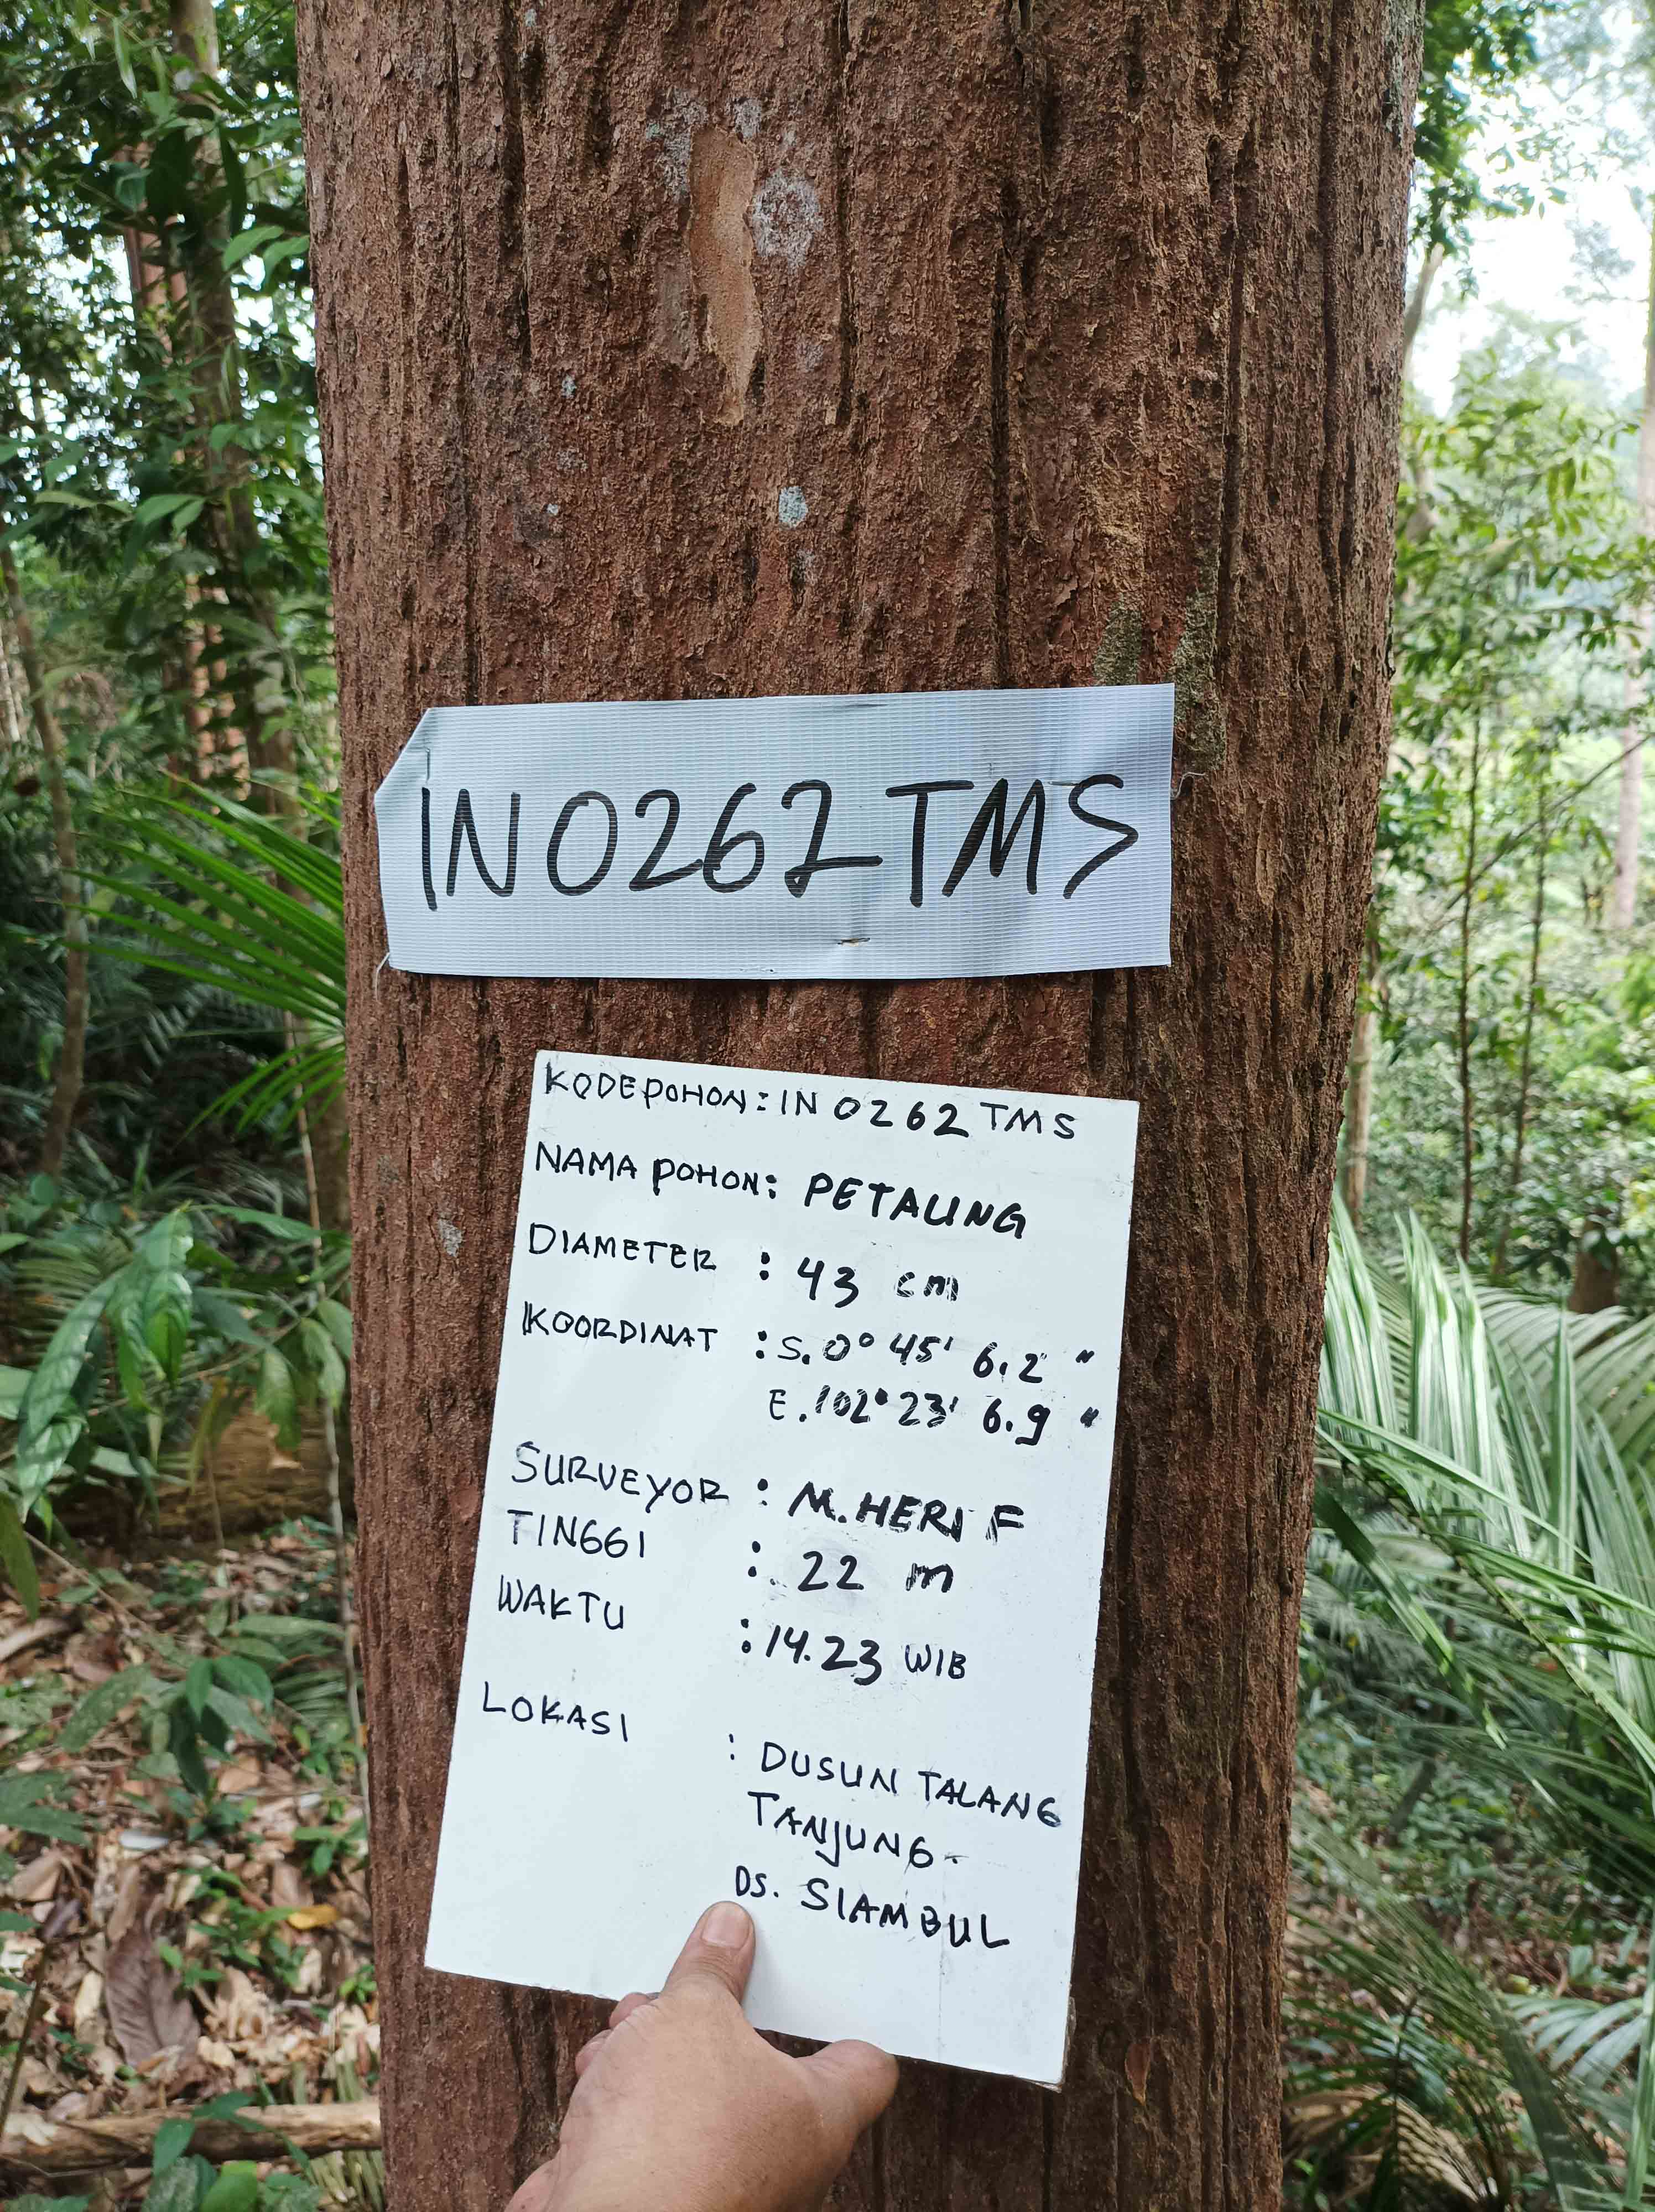 IN0262TMS
KODEPOHON : IN 0262 TMS
NAMA POHON : PETALING
DIAMETER : 43 cm
KOORDINAT : S. 0° 45' 6.2 "
E. 102° 23' 6.9 "
SURVEYOR : M. HERI F
TINGGI : 22 m
WAKTU : 14.23 WIB
LOKASI : DUSUN TALANG
TANJUNG -
DS. SIAMBUL